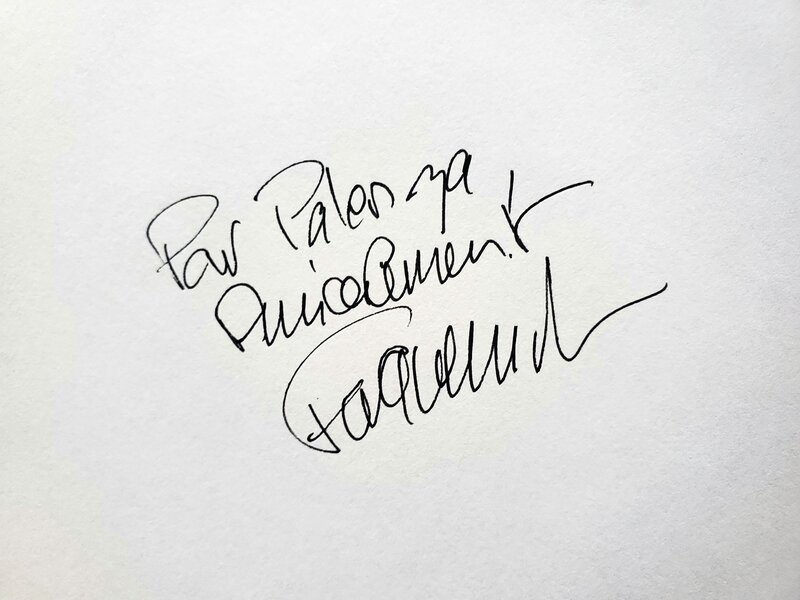 Pour Palenza
Amicalement